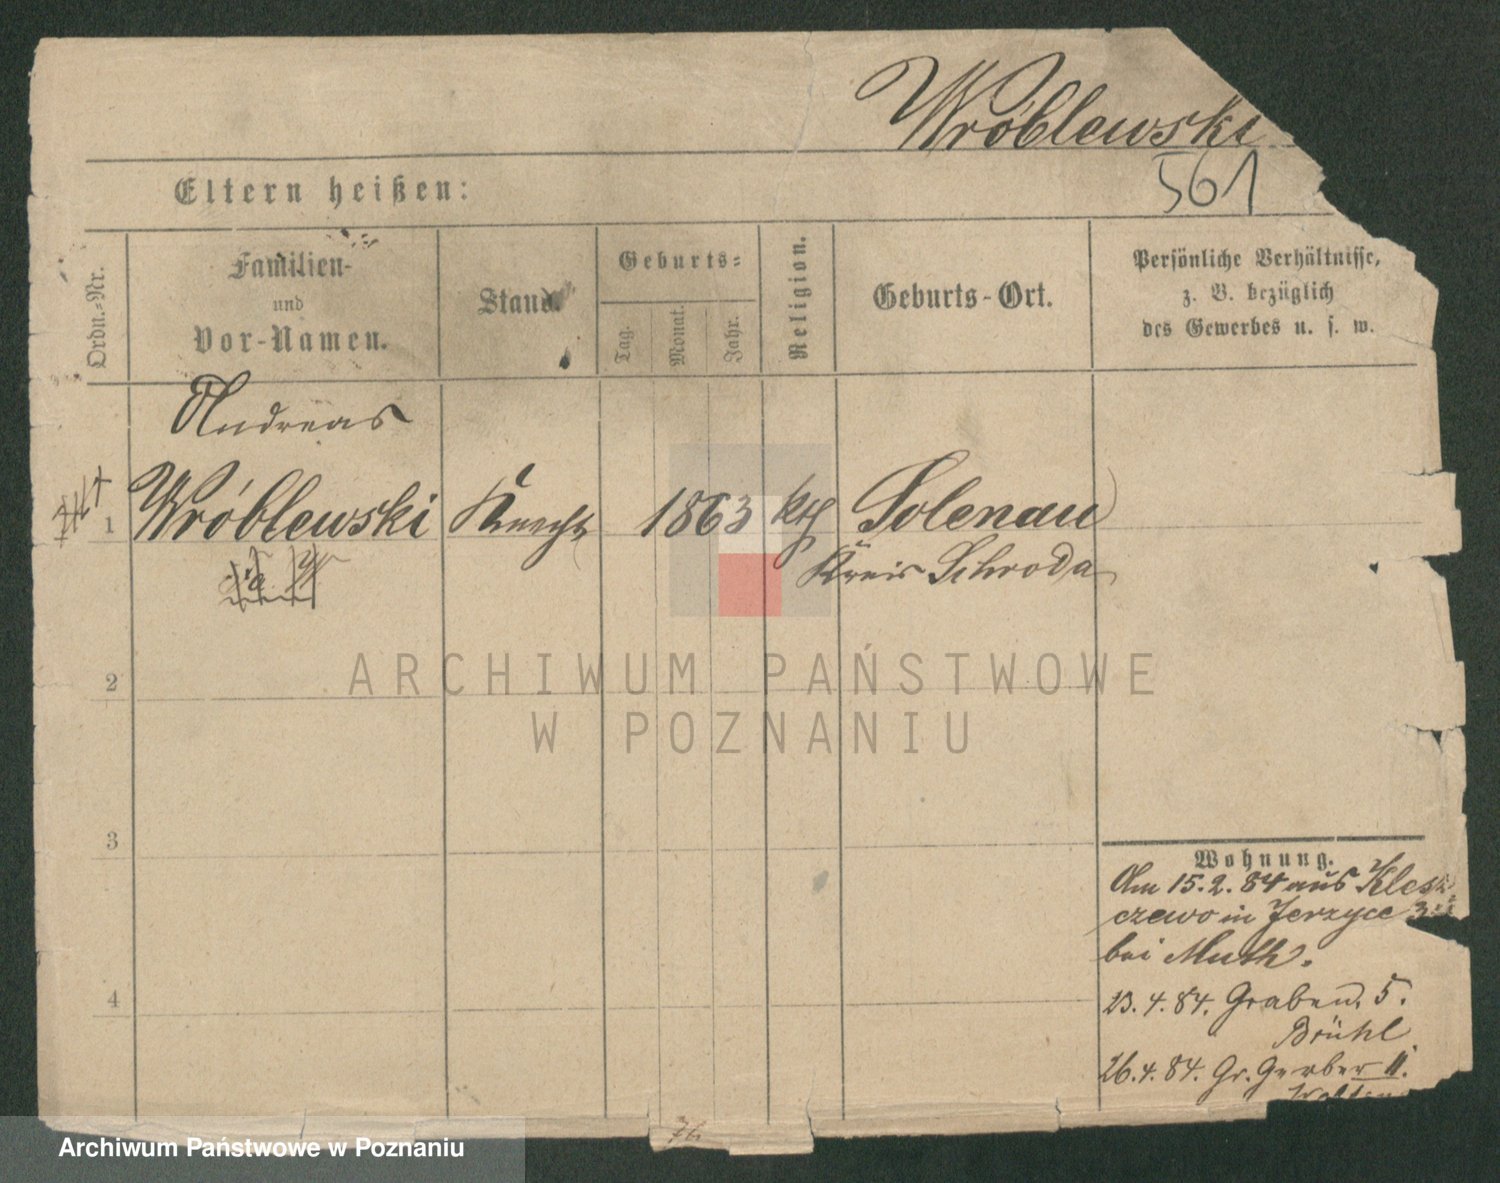 Wróblewski
561
Eltern heißen:
Ordn.-Nr.
Familien-
und
Vor-Namen.
Stand.
Geburts-
Tag.
Monat.
Jahr.
Religion.
Geburts-Ort.
Persönliche Verhältnisse,
z. B. bezüglich
des Gewerbes u. s. w.
Andreas
1 Wróblewski Knecht 1863 kth Solenau
Kreis Schroda
2
3
4
ARCHIWUM PAŃSTWOWE
W POZNANIU
Wohnung.
Am 15.2.84 aus Klesz
czewo in Jerzyce
bei Muth.
23.4.84. Graben 5.
Brühl
26.4.84. Gr. Gerber 11.
76
Archiwum Państwowe w Poznaniu